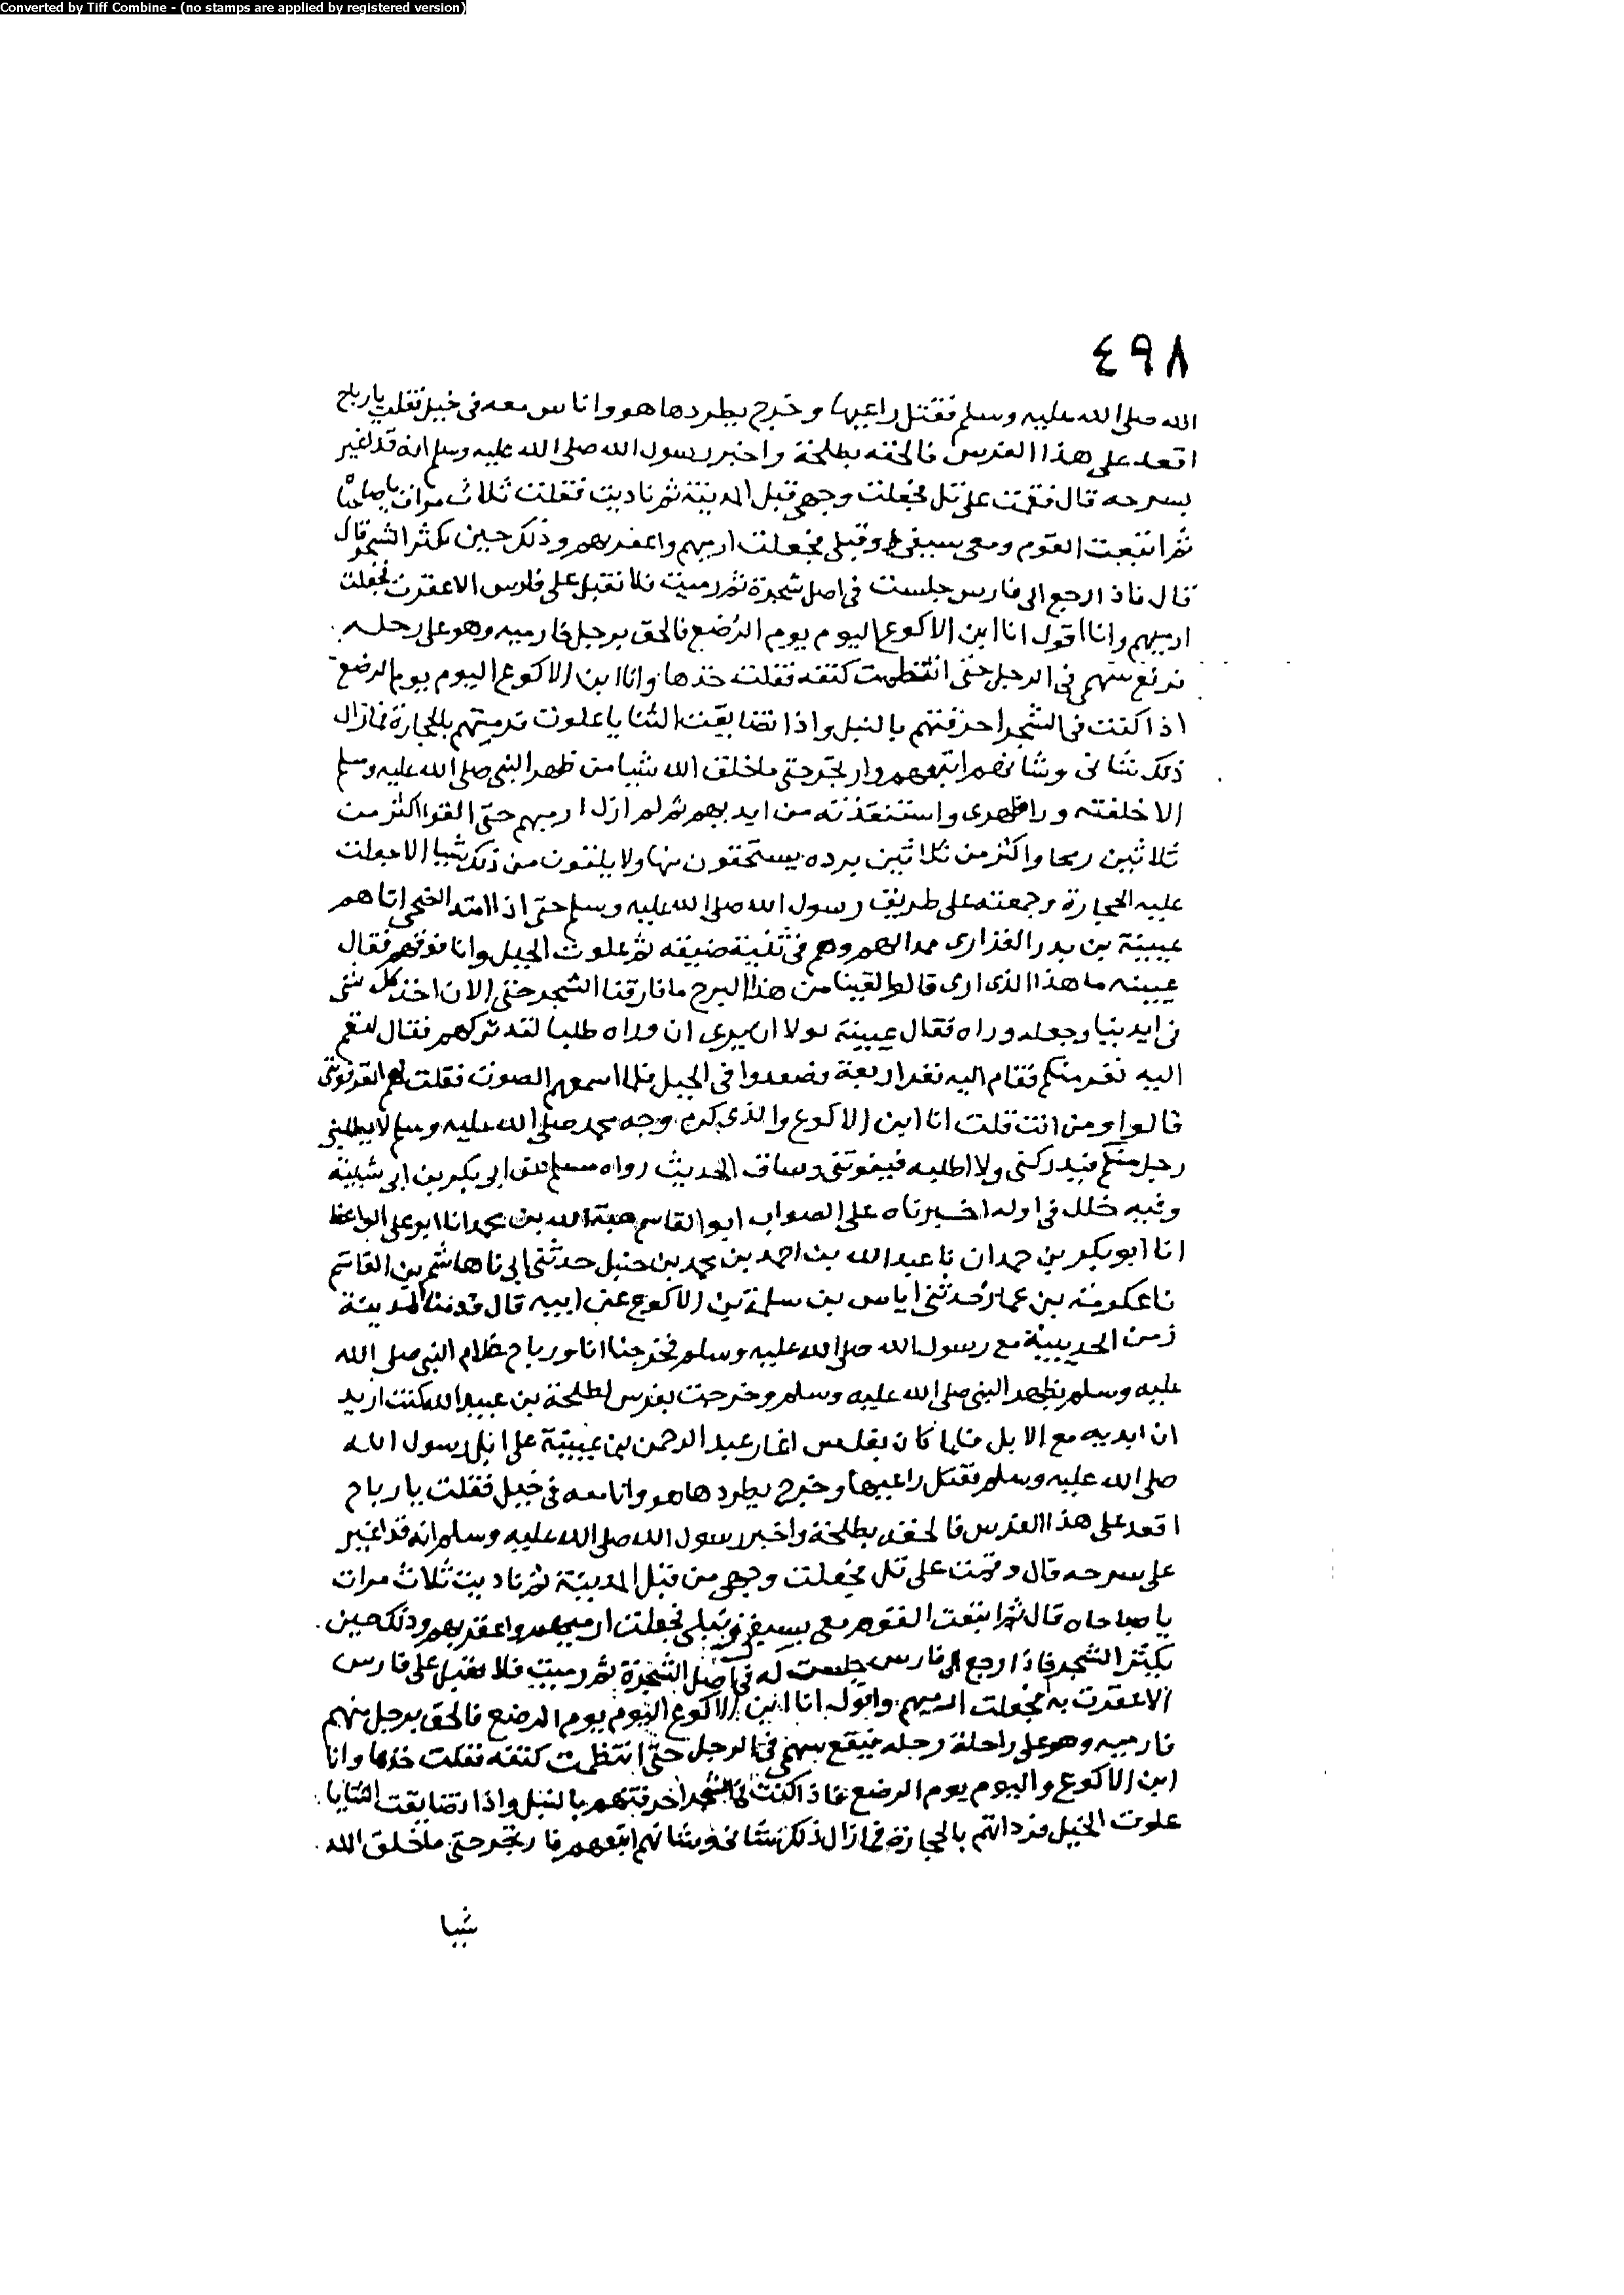 Converted by Tiff Combine - (no stamps are applied by registered version)
٤٩٨
الله صلى الله عليه وسلم فقتل راعيها وخرج يطردها هو واناس معه فى خيل فقلت يا رباح
اقعد على هذا الفرس فالحقه بطلحة واخبر رسول الله صلى الله عليه وسلم انه قد اغير
بسرحه قال فقمت على تل فجعلت وجهى قبل المدينة ثم ناديت فقلت ثلاث مرات يا صباحاه
ثم اتبعت القوم ومعى سيفى ونبلى فجعلت ارميهم واعقر بهم وذلك حين يكثر الشجر قال
قال فاذا رجع الى فارس جلست فى اصل شجرة ثم رميت فلا نقبل على فارس الا عقرت فجعلت
ارميهم وانا اقول انا ابن الاكوع اليوم يوم الرضع فالحق برجل فارميه وهو على رحله
سهم فى الرجل حتى انتظمت كتفه فقلت خذها وانا ابن الاكوع اليوم يوم الرضع
اذا كنت فى الشجر احرقتهم بالنبل واذا تضايقت الثنايا علوت فرميتهم بالحجارة فما زال
ذلك شانى وشانهم اتبعهم وارتجز حتى ما خلق الله شيا من ظهر النبى صلى الله عليه وسلم
الا خلفته ورا ظهرى واستنقذته من ايديهم ثم لم ازل ارميهم حتى القوا اكثر من
ثلاثين رمحا واكثر من ثلاثين برده يستخفون منها ولا يلقون من ذلك شيا الا جعلت
عليه الحجارة وجمعته على طريق رسول الله صلى الله عليه وسلم حتى اذا امتد الضحى اتاهم
عيينة بن بدر الفزارى مدا لهم وهم فى ثنية ضيقه ثم علوت الجبل وانا فوقهم فقال
عيينه ما هذا الذى ارى قالوا لقينا من هذا البرح ما فارقنا الشجر حتى الان اخذ كل شى
فى ايدينا وجعله وراه فقال عيينة لولا ان يرى ان وراه طلبا لقد ترككم فقال ليقم
اليه نفر منكم فقام اليه نفر اربعة فصعدوا فى الجبل فلما اسمعهم الصوت فقلت لهم اتعرفونى
قالوا ومن انت قلت انا ابن الاكوع والذى كرم وجه محمد صلى الله عليه وسلم لا يطلبنى
رجل منكم فيدركنى ولا اطلبه فيفوتنى وساق الحديث رواه مسلم عن ابى بكر بن ابى شيبة
وفيه خلل فى اوله اخبرناه على الصواب ابو القاسم هبة الله بن محمد انا ابو على الواعظ
انا ابو بكر بن حمدان نا عبد الله بن احمد بن محمد بن حنبل حدثنى ابى نا هاشم بن القاسم
نا عكرمة بن عمار حدثنى اياس بن سلمة بن الاكوع عن ابيه قال قدمنا المدينة
زمن الحديبية مع رسول الله صلى الله عليه وسلم فخرجنا انا ورباح غلام النبى صلى الله
عليه وسلم بظهر النبى صلى الله عليه وسلم وخرجت بفرس لطلحة بن عبيد الله كنت اريد
ان ابديه مع الابل فلما كان بغلس اغار عبد الرحمن بن عيينة على ابل رسول الله
صلى الله عليه وسلم فقتل راعيها وخرج يطردها هو واناس معه فى خيل فقلت يا رباح
اقعد على هذا الفرس فالحقه بطلحة واخبر رسول الله صلى الله عليه وسلم انه قد اغير
على سرحه قال وقمت على تل فجعلت وجهى من قبل المدينة ثم ناديت ثلاث مرات
يا صباحاه قال ثم اتبعت القوم معى سيفى ونبلى فجعلت ارميهم واعقر بهم وذلك حين
يكثر الشجر فاذا رجع الى فارس جلست له فى اصل الشجرة ثم رميت فلا يقبل على فارس
الا عقرت به فجعلت ارميهم واقول انا ابن الاكوع اليوم يوم الرضع فالحق برجل منهم
فارميه وهو على راحلة رحله فيقع سهمى فى الرجل حتى انتظمت كتفه فقلت خذها وانا
ابن الاكوع واليوم يوم الرضع فاذا كنت فى الشجر احرقتهم بالنبل واذا تضايقت الثنايا
علوت الجبل فرداتهم بالحجارة فما زال ذلك شانى وشانهم اتبعهم فارتجز حتى ما خلق الله
شيا